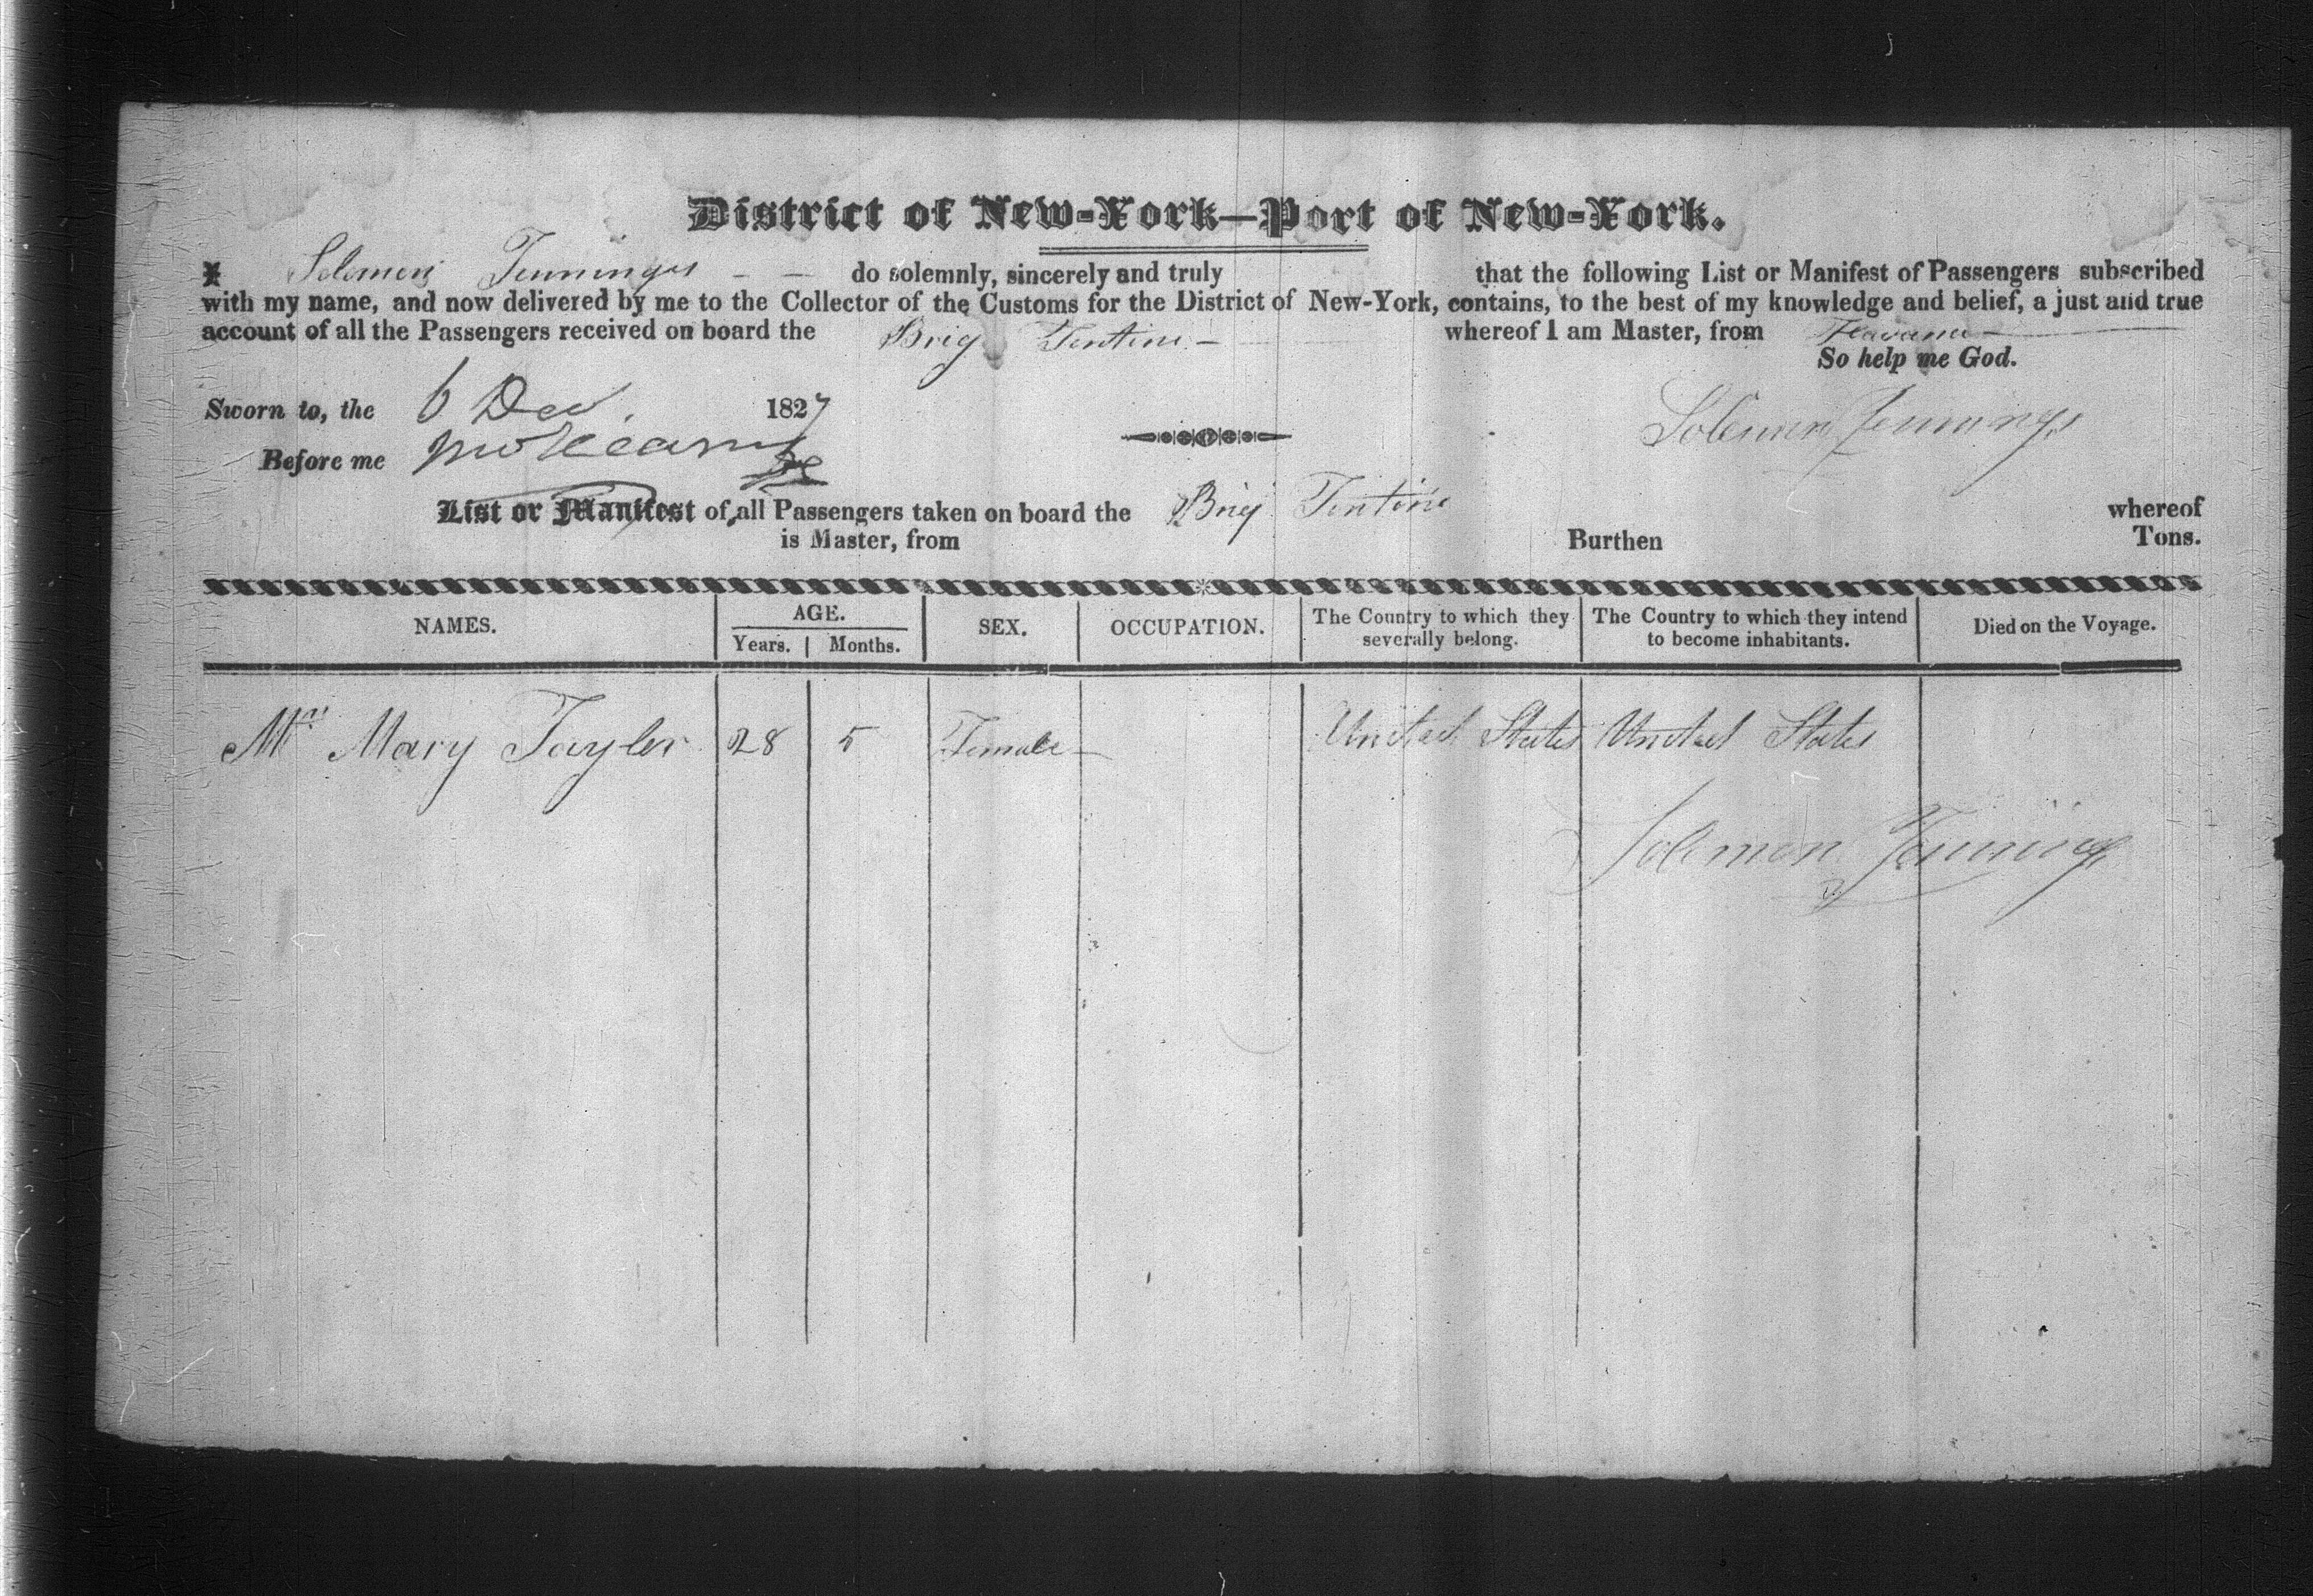 District of New-York—Port of New-York.
I Solomon Jennings - - do solemnly, sincerely and truly that the following List or Manifest of Passengers subscribed
with my name, and now delivered by me to the Collector of the Customs for the District of New-York, contains, to the best of my knowledge and belief, a just and true
account of all the Passengers received on board the Brig Tontine - whereof I am Master, from Havana
So help me God.
Sworn to, the 6 Dec. 1827
Solomon Jennings
Before me
List or Manifest of, all Passengers taken on board the Brig Tontine whereof
is Master, from Burthen Tons.
NAMES. AGE. SEX. OCCUPATION. The Country to which they severally belong. The Country to which they intend to become inhabitants. Died on the Voyage.
Years. Months.
Mrs Mary Taylor 28 5 Female United States United States
Solomon Jennings